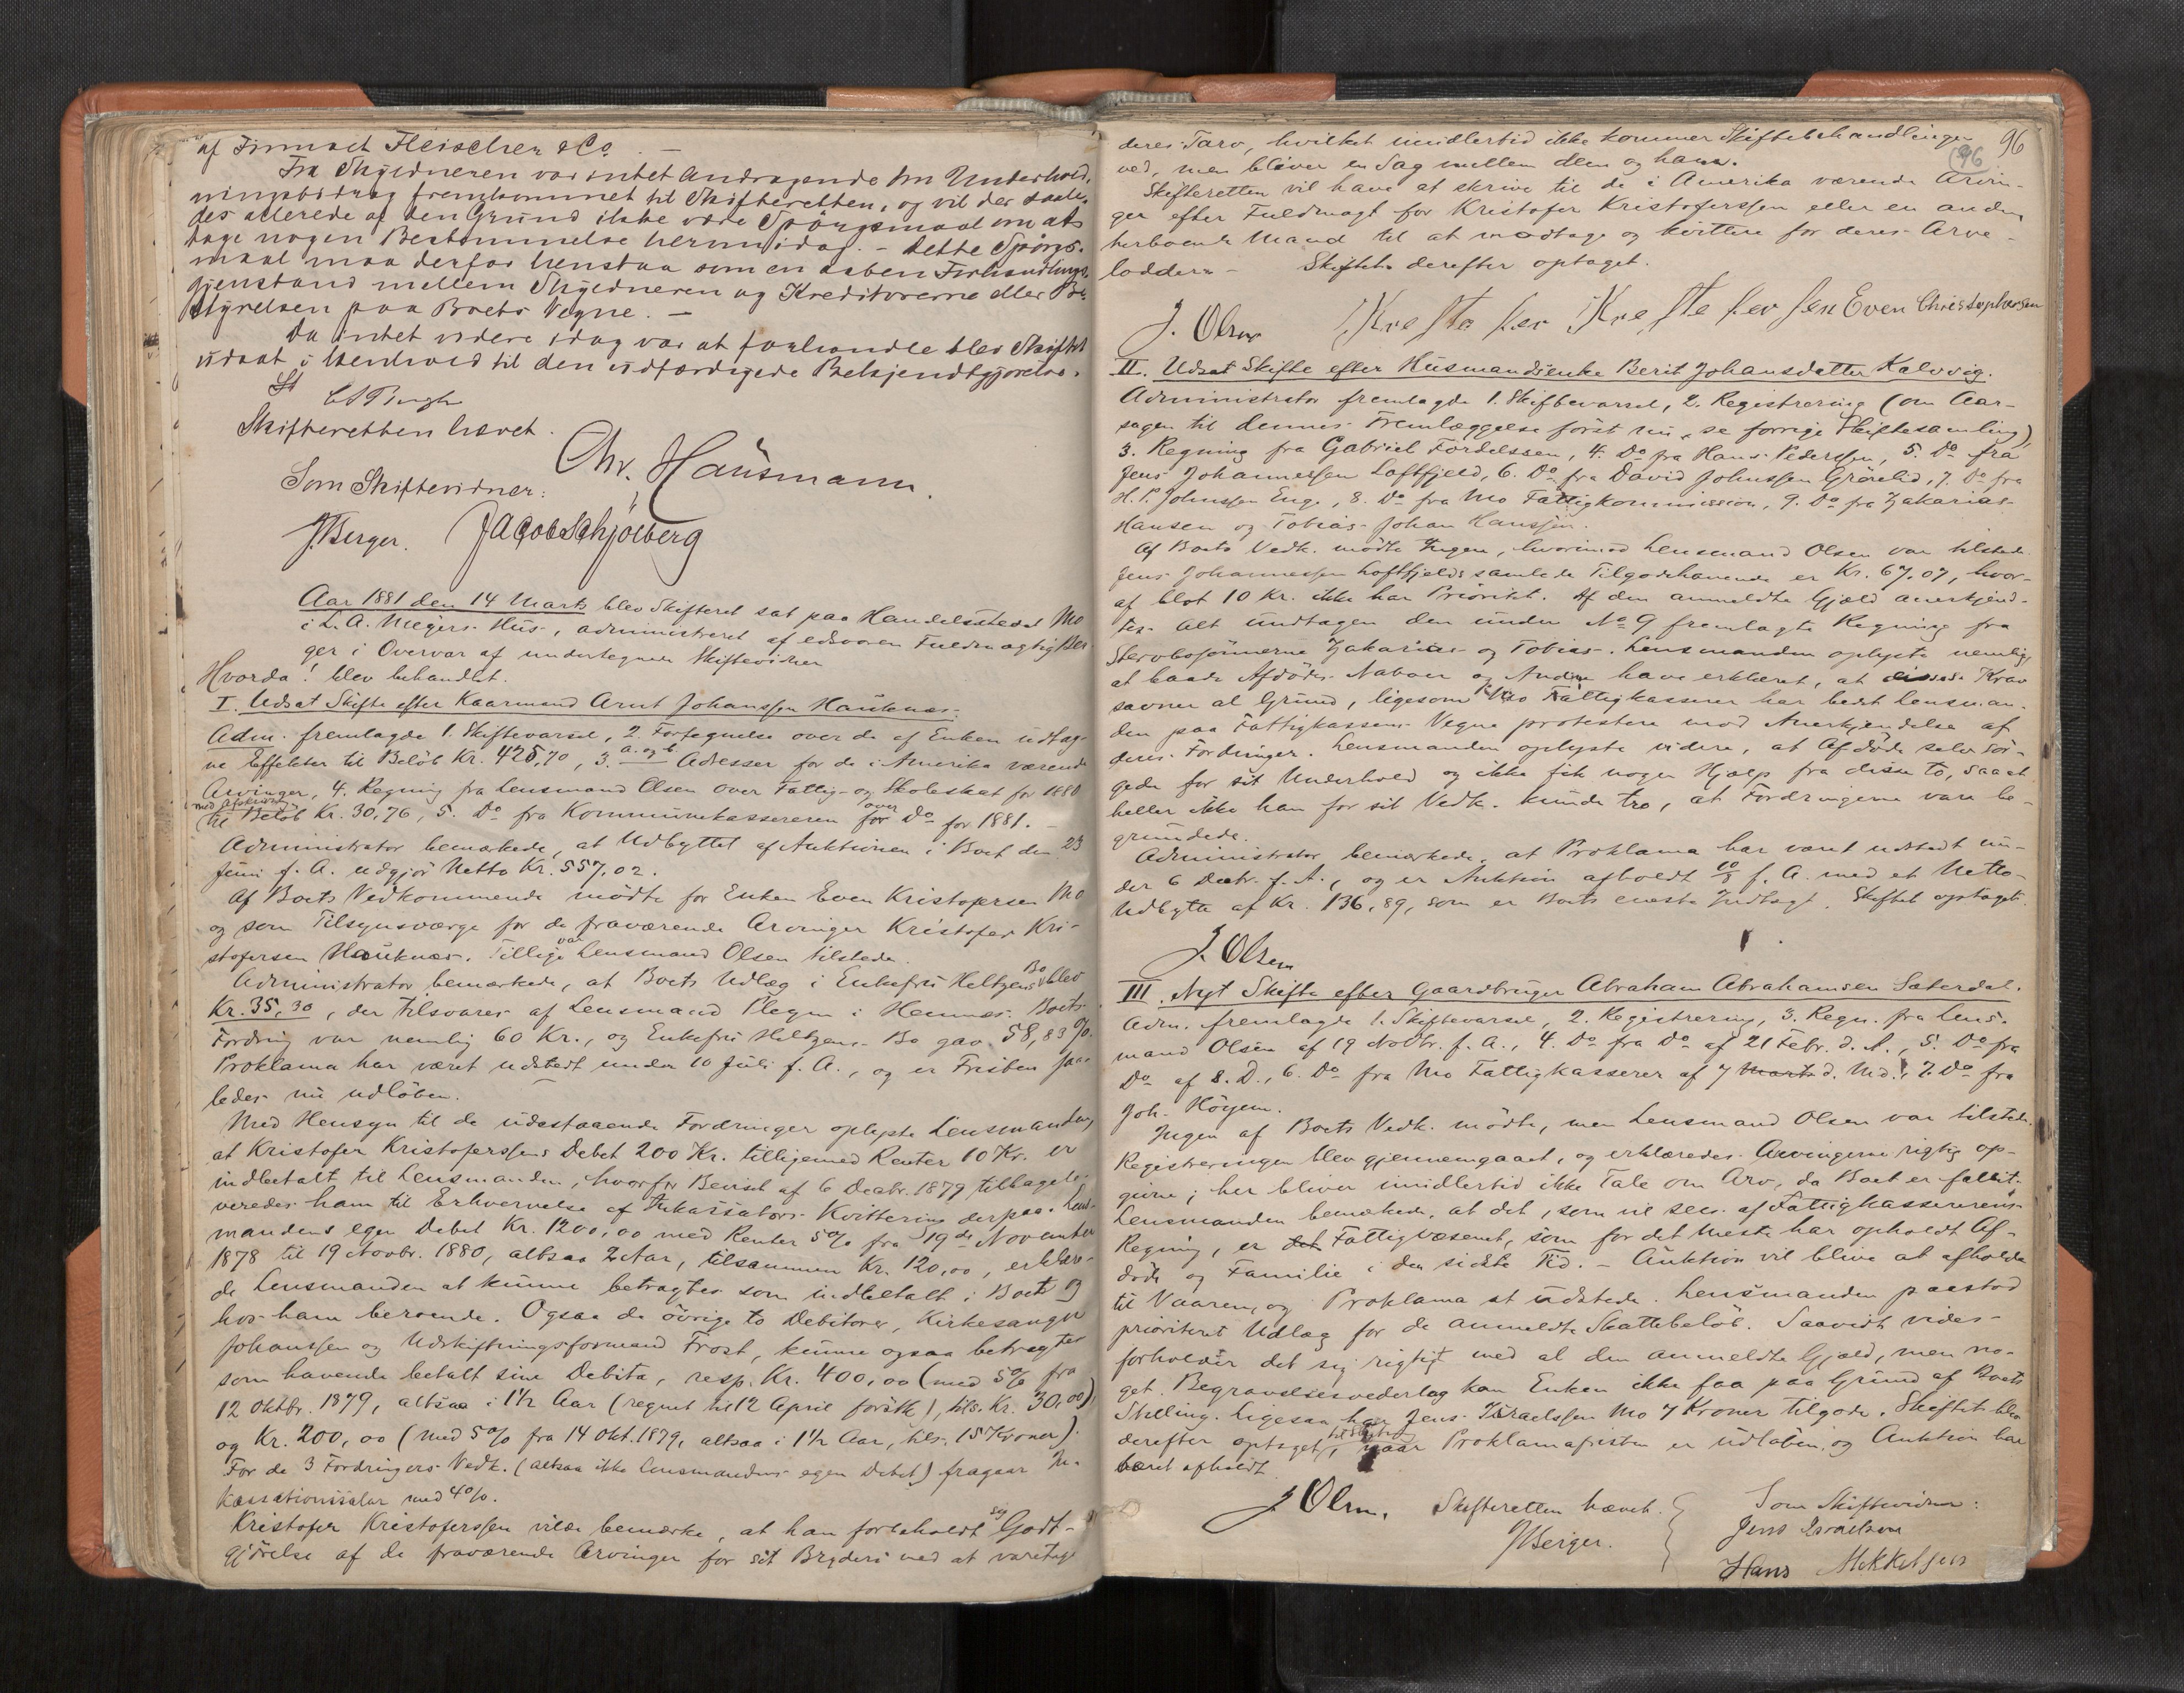 af Firmaet Fleischer & Co. —
Fra Skyldneren var intet Andragende om Underhold,
ningsbidrag fremkommet til Skifteretten, og vil der saale,
des allerede af den Grund ikke være Spørgsmaal om at
tage nogen Bestemmelse herom idag. – Dette Spörgs-
maal maa derfor henstaa som en aaben Forhandlings,
gjenstand mellem Skyldneren og Kreditorerne eller Be,
styrelsen paa Boets Vegne. —
Da intet videre idag var at forhandle blev Skiftet
udsat i Henhold til den udfærdigede Bekjendtgjørelse.
Skifteretten hævet.
Chr. Hausmann.
Som Skiftevidner:
J Berger. Jacob Schjölberg
Aar 1881 den 14 Marts blev Skifteret sat paa Handelsstedet Mo
i L. A. Meyers Hus, administreret af edsvoren Fuldmægtig Ber-
ger i Overvær af undertegnede Skiftevidner
Hvorda! blev behandlet.
I. Udsat Skifte efter Kaarmand Arnt Johanssen Hauknæs.
Adm. fremlagde 1. Skiftevarsel, 2 Fortegnelse over de af Enken udtag-
ne Effekter til Beløb Kr. 425,70, 3. a. og b Adresser for de i Amerika værende
Arvinger, 4. Regning fra Lensmand Olsen over Fattig- og Skoleskat for 1880
med Afskrift
til Beløb Kr. 30,76, 5. Do fra Kommunekassereren for over Do for 1881. —
Administrator bemærkede, at Udbyttet af Auktionen i Boet den 23
Juni f. A. udgjör Netto Kr. 557,02.
Af Boets Vedkommende mödte for Enken Even Kristofersen Mo
og som Tilsynsværge for de fraværende Arvinger Kristofer Kri-
stofersen Hauknæs. Tillige var Lensmand Olsen tilstede.
Administrator bemærkede, at Boets Udlæg i Enkefru Heltzens Bo blev
Kr. 35,30, der tilsvares af Lensmand Plegen i Hemnes. Boets
Fordring var nemlig 60 Kr., og Enkefru Heltzens Bo gav 58,83 %.
Proklama har været udstedt under 10 Juli f. A., og er Fristen saa-
ledes nu udlöben.
Med Hensyn til de udestaaende Fordringer oplyste Lensmanden,
at Kristofer Kristoferssens Debet 200 Kr. tilligemed Renter 10 Kr. er
indbetalt til Lensmanden, hvorfor Beviset af 6 Decbr. 1879 tilbagele-
veredes ham til Erhvervelse af Inkassators Kvittering derpaa. Lens-
mandens egen Debet Kr. 1200,00 med Renter 5% fra 19de November
1878 til 19 Novbr. 1880, altsaa 2 Aar, tilsammen Kr. 120,00, erklære-
de Lensmanden at kunne betragtes som indbetalt i Boet og
hos ham beroende. Ogsaa de övrige to Debitorer, Kirkesanger
Johanssen og Udskiftningsformand Frost, kunne ogsaa betragtes
som havende betalt sine Debita, resp. Kr. 400,00 (med 5% fra
12 Oktbr. 1879, altsaa i 1½ Aar (regnet til 12 April förstk), tils. Kr. 30,00),
og Kr. 200,00 (med 5% fra 14 Okt. 1879, altsaa i 1½ Aar, tils. 15 Kroner).
For de 3 Fordringers Vedk. (altsaa ikke Lensmandens egen Debet) fragaar In-
kassationssalær med 4%.
Kristofer Kristoferssen vilde bemærke, at han forbeholdt sig Godt-
gjörelse af de fraværende Arvinger for sit Bryderi ved at varetage
96
96
deres Tarv, hvilket imidlertid ikke kommer Skiftebehandlingen
ved, men bliver en Sag mellem dem og ham.
Skifteretten vil have at skrive til de i Amerika værende Arvin-
ger efter Fuldmagt for Kristofer Kristoferssen eller en anden
herboende Mand til at modtage og kvittere for deres Arve-
lodder. – Skiftet derefter optaget.
J. Olsen Krestofer Krestofersen Even Christophersen
II. Udsat Skifte efter Husmandsenke Berit Johansdatter Kalvvig.
Administrator fremlagde 1. Skiftevarsel, 2. Registrering (om Aar-
sagen til dennes Fremlæggelse först nu, se forrige Skiftesamling),
3. Regning fra Gabriel Fordelssen, 4. Do fra Hans Pederssen, 5. Do fra
Jens Johannessen Loftfjeld, 6. Do fra David Johnssen Grönlid, 7. Do fra
H. P. Johnssen Enge, 8. Do fra Mo Fattigkommission, 9. Do fra Zakarias
Hansen og Tobias Johan Hanssen.
Af Boets Vedk. mödte Ingen, hvorimod Lensmand Olsen var tilstede.
Jens Johannessen Loftfjelds samlede Tilgodehavende er Kr. 67.07, hvor-
af blot 10 Kr. ikke har Prioritet. Af den anmeldte Gjæld anerkjend-
tes Alt undtagen den under No 9 fremlagte Regning fra
Stervbosönnerne Zakarias og Tobias. Lensmanden oplyste nemlig,
at baade Afdödes Naboer og Andre have erklæret, at disses Krav
savner al Grund, ligesom Mo Fattigkasserer har bedt Lensman-
den paa Fattigkassens Vegne protestere mod Anerkjendelse af
deres Fordringer. Lensmanden oplyste videre, at Afdöde selv sör-
gede for sit Underhold og ikke fik nogen Hjælp fra disse to, saa at
heller ikke han for sit Vedk. kunde tro, at Fordringerne vare be-
grundede.
Administrator bemærkede, at Proklama har været udstedt un-
der 6 Decbr. f. A., og er Auktion afholdt f. A. med et Netto-
Udbytte af Kr. 136,89, som er Boets eneste Indtægt. Skiftet optaget.
J. Olsen
III. Nyt Skifte efter Gaardbruger Abraham Abrahamsen Sæterdal.
Adm. fremlagde 1. Skiftevarsel, 2. Registrering, 3. Regn. fra Lens-
mand Olsen af 19 Novbr. f. A., 4. Do fra Do af 21 Febr. d. A., 5. Do fra
Do af 8. D., 6. Do fra Mo Fattigkasserer af 7 Marts d. Md., 7. Do fra
Joh. Högem.
Ingen af Boets Vedk. mödte, men Lensmand Olsen var tilstede.
Registreringen blev gjennemgaaet, og erklæredes Arvingerne rigtig op-
givne; her bliver imidlertid ikke Tale om Arv, da Boet er fallit.
Lensmanden bemærkede, at det, som vil sees af Fattigkassererens
Regning, er det Fattigvæsenet, som for det meste har opholdt Af-
döde og Familie i den sidste Tid. – Auktion vil blive at afholde
til Vaaren, og Proklama at udstede. Lensmanden paastod
prioriteret Udlæg for de anmeldte Skattebelöb. Saavidt vides
forholder det sig rigtigt med al den anmeldte Gjæld, men no-
get Begravelsesvederlag kan Enken ikke faa paa Grund af Boets
Stilling. Ligesaa har Jens Israelssen Mo 7 Kroner tilgode. Skiftet blev
derefter optaget, naar Proklamafristen er udlöben, og Auktion har
været afholdt.
J Olsen. Skifteretten hævet. Som Skiftevidner:
J Berger. Jens Israelsen
Hans Mekkelsen